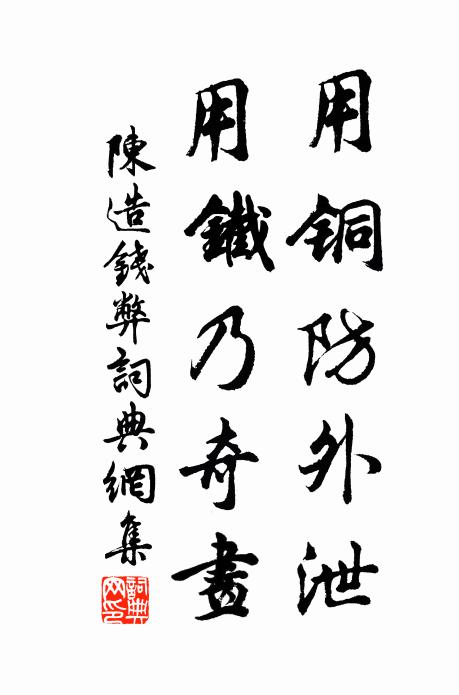 用铜防外泄
用鐵乃奇畫
陳造錢弊詞典網集
詞典